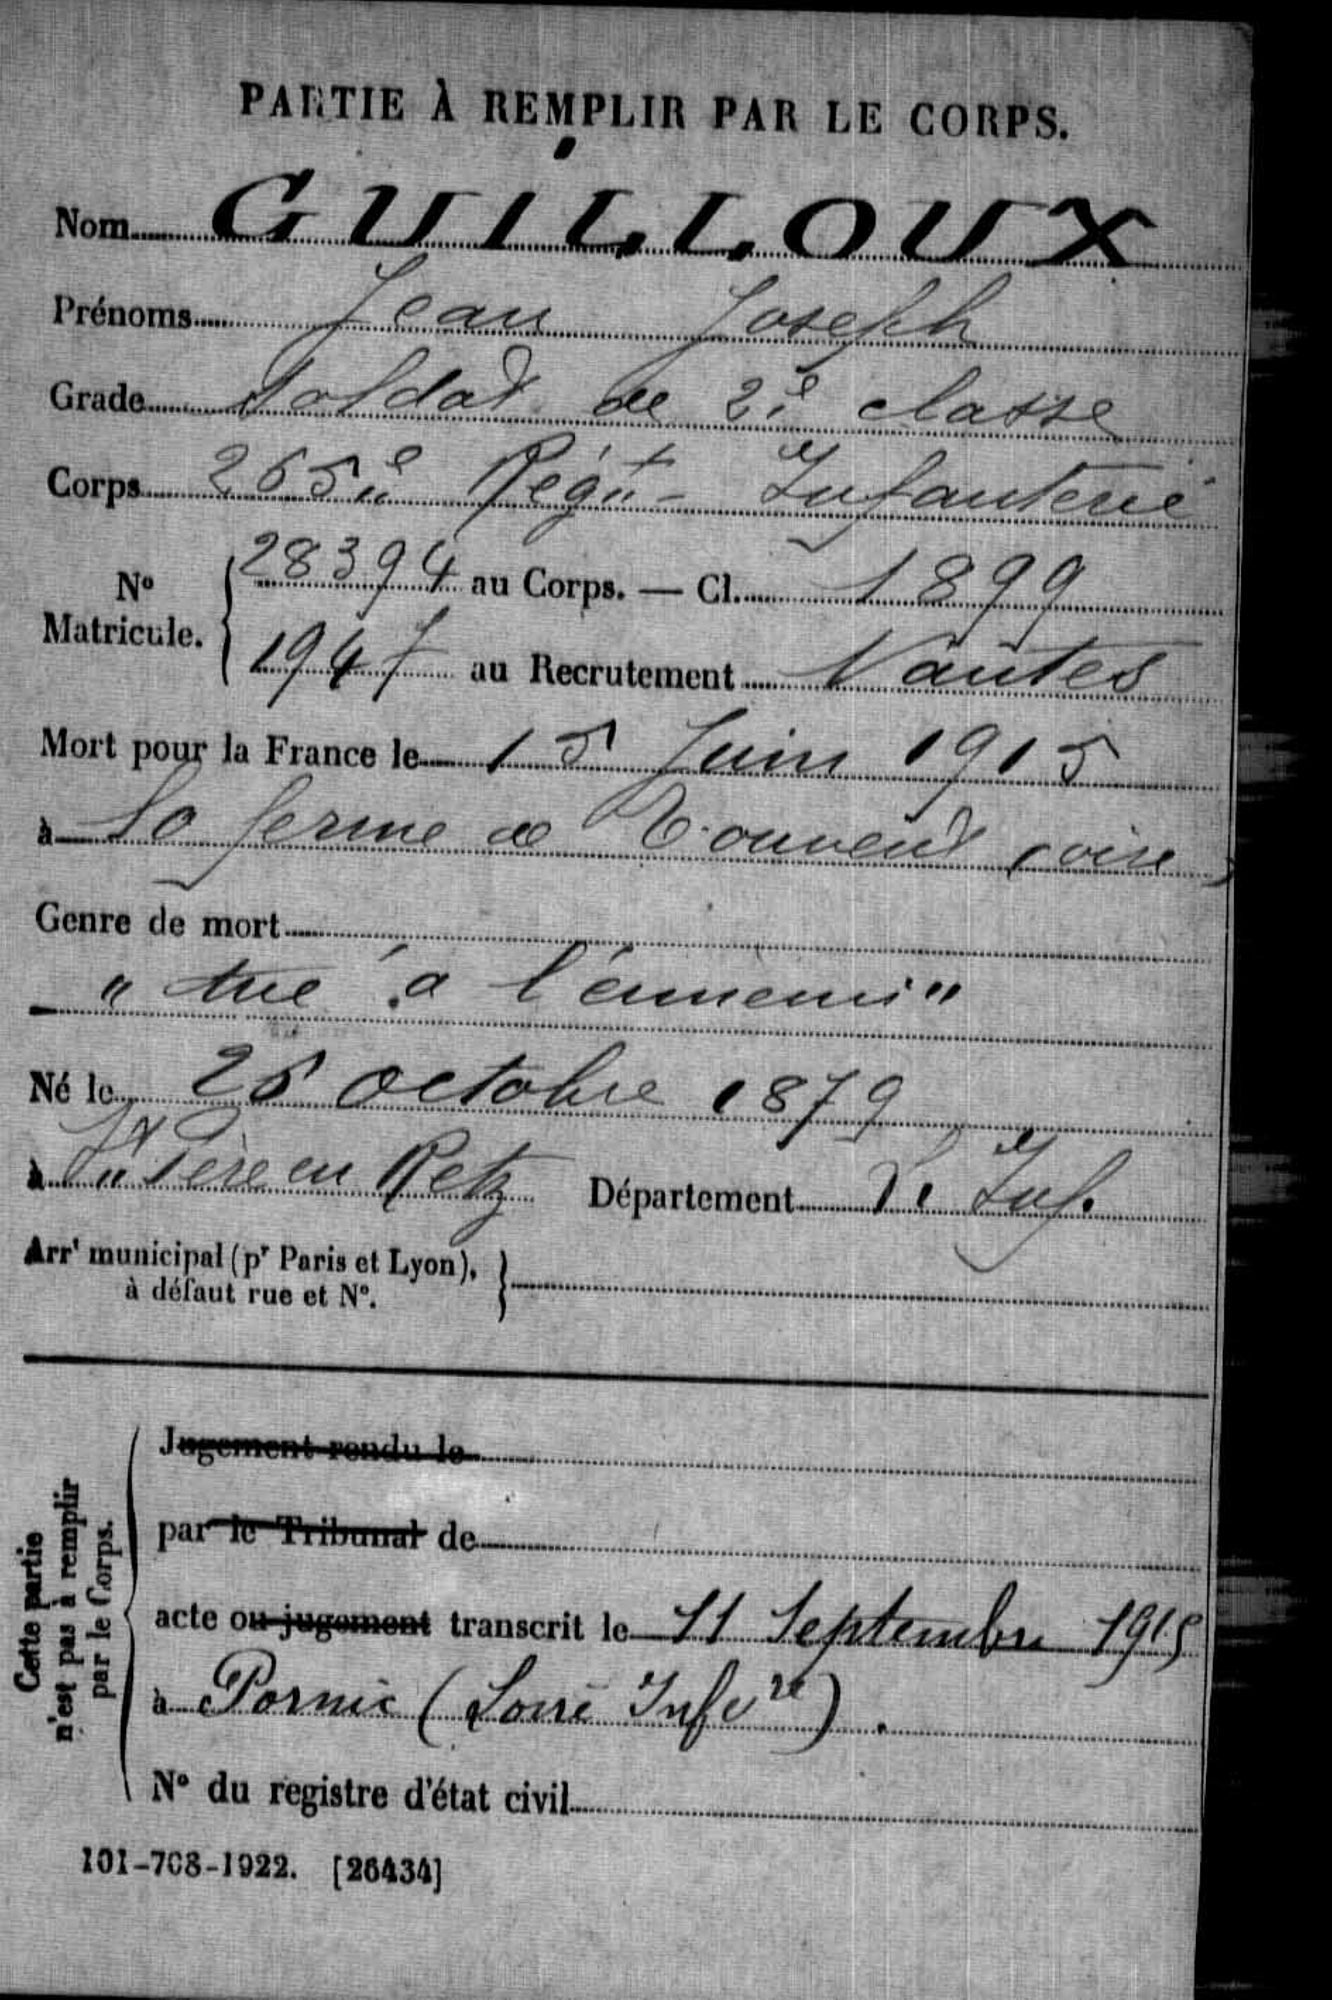 PARTIE À REMPLIR PAR LE CORPS.
Nom GUILLOUX
Prénoms Jean Joseph
Grade Soldat de 2e classe
Corps 265e Régt Infanterie
No Matricule. 28394 au Corps. — Cl. 1899
1947 au Recrutement Nantes
Mort pour la France le 15 Juin 1915
à La ferme de Touvent (oise)
Genre de mort
"tué à l'ennemi"
Né le 26 octobre 1879
à St Père en Retz Département Lre Inf.
Arrt municipal (pr Paris et Lyon), à défaut rue et No.
Cette partie n'est pas à remplir par le Corps.
Jugement rendu le
par le Tribunal de
acte ou jugement transcrit le 11 Septembre 1915
à Pornic (Loire Infre).
No du registre d'état civil
101-708-1922. [26434]